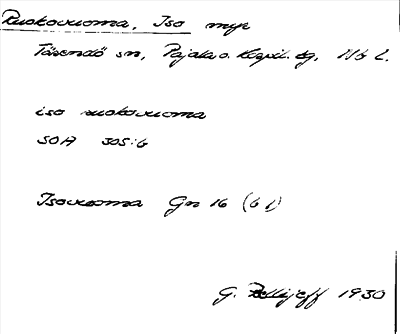 Ruokovuoma, Iso myr
Tärendö sn, Pajala o. Korpil. tg, Nb l.
iso ruokovuoma
SOA 305:6
Isovuoma Gn 16 (b 1)
G. Pellijeff 1930